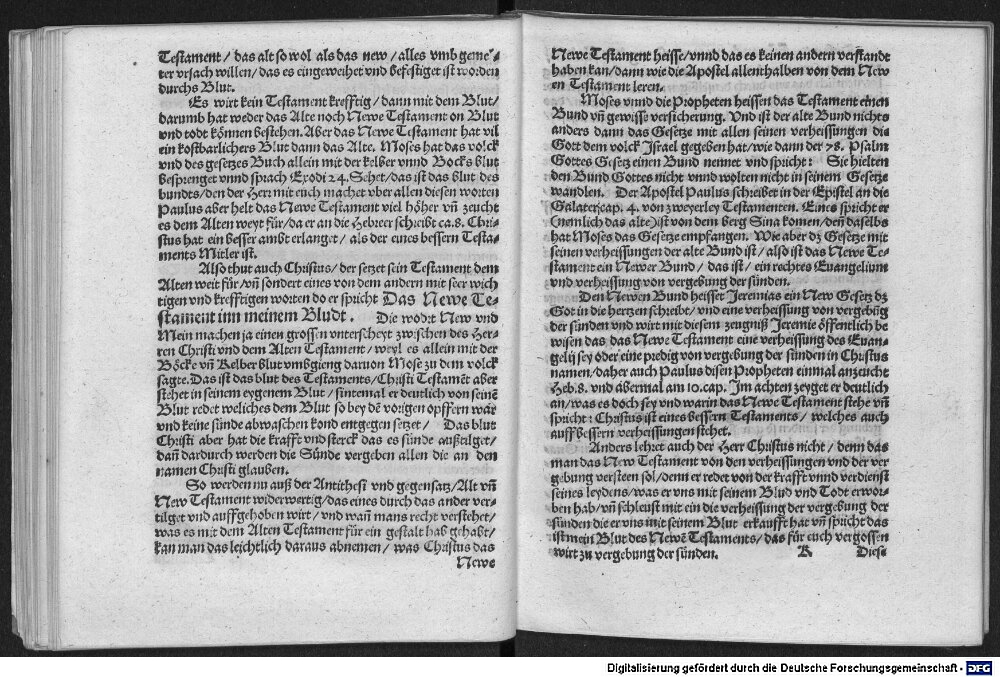 Testament / das alt so wol als das new / alles vmb gemel⸗
ter vrsach willen / das es eingeweihet vnd befestiget ist worden
durchs Blut.
Es wirt kein Testament krefftig / dann mit dem Blut /
darumb hat weder das Alte noch Newe Testament on Blut
vnd todt können bestehen. Aber das Newe Testament hat vil
ein kostbarlichers Blut dann das Alte. Moses hat das volck
vnd des gesetzes Buch allein mit der kelber vnnd Bocks blut
besprenget vnnd sprach Exodi 24. Sehet / das ist das blut des
bundts / den der Herr mit euch machet vber allen diesen worten
Paulus aber helt das Newe Testament viel höher vñ zeucht
es dem Alten weyt für / da er an die Hebreer schreibt ca. 8. Chri⸗
stus hat ein besser ambt erlanget / als der eines bessern Testa⸗
ments Mitler ist.
Also thut auch Christus / der setzet sein Testament dem
Alten weit für / vñ sondert eines von dem andern mit seer wich
tigen vnd krefftigen worten do er spricht Das Newe Te⸗
stament inn meinem Bludt. Die wodrt New vnd
Mein machen ja einen grossen vnterscheyt zwischen des Her⸗
ren Christi vnd dem Alten Testament / weyl es allein mit der
Böcke vñ Kelber blut vmbgieng daruon Mose zu dem volck
sagte. Das ist das blut des Testaments / Christi Testamēt aber
stehet in seinem eygenem Blut / sintemal er deutlich von seinē
Blut redet weliches dem Blut so bey dē vorigen opffern war
vnd keine sünde abwaschen kond entgegen setzet / Das blut
Christi aber hat die krafft vnd sterck das es sünde außtilget /
dañ dardurch werden die Sünde vergeben allen die an den
namen Christi glauben.
So werden nu auß der Antithesi vnd gegensatz / Alt vñ
New Testament widerwertig / das eines durch das ander ver⸗
tilget vnd auffgehoben wirt / vnd wañ mans recht verstehet /
was es mit dem Alten Testament für ein gestalt hab gehabt /
kan man das leichtlich daraus abnemen / was Christus das
Newe
Newe Testament heisse / vnnd das es keinen andern verstandt
haben kan / dann wie die Apostel allenthalben von dem New
en Testament leren.
Moses vnnd die Propheten heissen das Testament einen
Bund vñ gewisse versicherung. Vnd ist der alte Bund nichts
anders dann das Gesetze mit allen seinen verheissungen die
Gott dem volck Israel gegeben hat / wie dann der 78. Psalm
Gottes Gesetz einen Bund nennet vnd spricht: Sie hielten
den Bund Gottes nicht vnnd wolten nicht in seinem Gesetze
wandlen. Der Apostel Paulus schreibet in der Epistel an die
Galater / cap. 4. von zweyerley Testamenten. Eines spricht er
(nemlich das alte) ist von dem berg Sina komen / deñ daselbs
hat Moses das Gesetze empfangen. Wie aber dz Gesetze mit
seinen verheissungen der alte Bund ist / also ist das Newe Te⸗
stament ein Newer Bund / das ist / ein rechtes Euangelium
vnd verheissung von vergebung der sünden.
Den Newen Bund heisset Jeremias ein New Gesetz dz
Got in die hertzen schreibt / vnd eine verheissung von vergebūg
der sünden vnd wirt mit diesem zeugniß Jeremie öffentlich be
wisen das das Newe Testament eine verheissung des Euan⸗
gelij sey oder eine predig von vergebung der sünden in Christus
namen / daher auch Paulus disen Propheten einmal anzeucht
Heb. 8. vnd abermal am 10. cap. Im achten zeyget er deutlich
an / was es doch sey vnd warin das Newe Testament stehe vñ
spricht: Christus ist eines bessern Testaments / welches auch
auff bessern verheissungen stehet.
Anders lehret auch der Herr Christus nicht / denn das
man das New Testament von den verheissungen vnd der ver
gebung versteen sol / denn er redet von der krafft vnnd verdienst
seines leydens / was er vns mit seinem Blud vnd Todt erwor⸗
ben hab / vñ schleust mit ein die verheissung der vergebung der
sünden die er vns mit seinem Blut erkaufft hat vñ spricht das
ist mein Blut des Newē Testaments / das für euch vergossen
wirt zu vergebung der sünden. K Diese
Digitalisierung gefördert durch die Deutsche Forschungsgemeinschaft - DFG